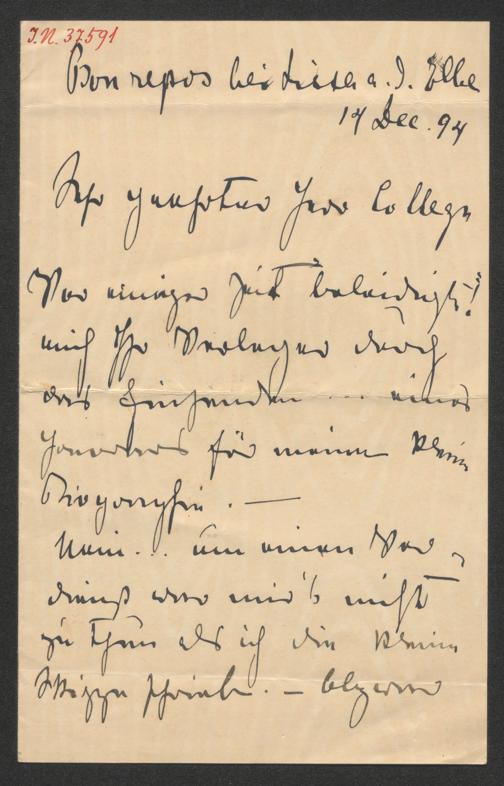 I.N. 37.591
Bon repos bei Lissa a. d. Elbe
14 Dec. 94
Sehr geehrter Herr College
Vor einiger Zeit beleidigte!
mich Ihr Verleger durch
das Einsenden ... eines
Honorares für meine kleine
Biographie. —
Nein... um einen Ver-
dienst war mir's nicht
zu thun als ich die kleine
Skizze schrieb. —